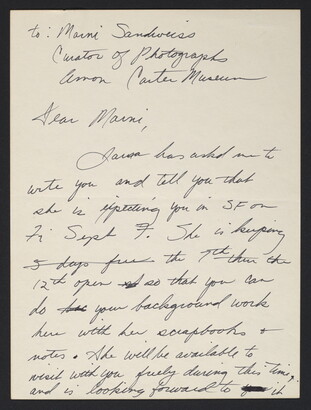 to: Marni Sandweiss
Curator of Photographs
Amon Carter Museum
Dear Marni,
has asked me to
write you and tell you that
she is expecting you in SF on
Fri Sept 7. She is keeping
5 days free the 7th thru the
12th open so that you can
do your background work
here with her scrapbooks &
notes. She will be available to
visit with you freely during this time,
and is looking forward to it